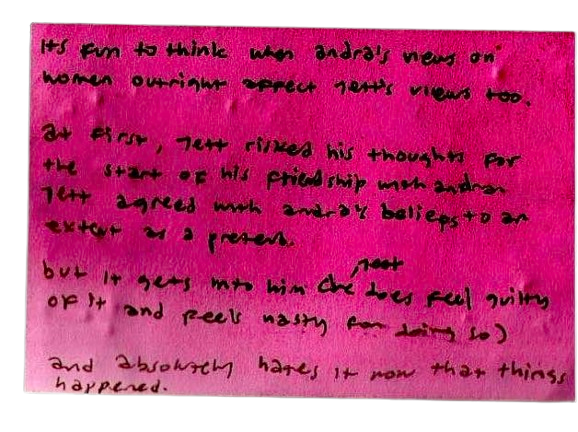 its fun to think when andra's views on
women outright affect jett's views too.
at first, jett risked his thoughts for
the start of his friendship with andra.
jett agreed with andra's beliefs to an
extent as a pretend.
but it gets into him (he does feel guilty
of it and feels nasty for doing so)
and absolutely hates it now that things
happened.